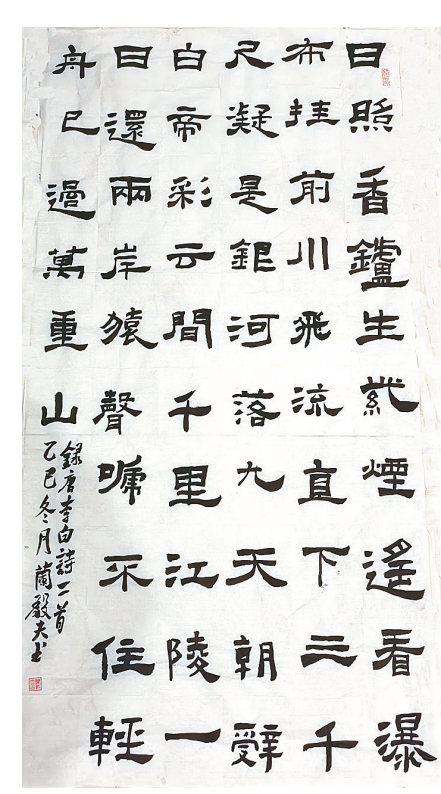 日照香鑪生紫煙遙看瀑
布挂前川飛流直下三千
尺疑是銀河落九天朝辭
白帝彩云間千里江陵一
日還兩岸猿聲嗁不住輕
舟已過萬重山
錄唐李白詩二首
乙巳冬月蘭毅夫书